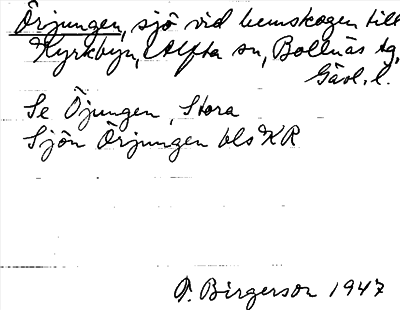 Örjungen, sjö vid hemskogen till
Kyrkbyn, Alfta sn, Bollnäs tg,
Gävl. l.
Se Öjungen, Stora
Sjön Örjungen bls KR
P. Birgerson 1947